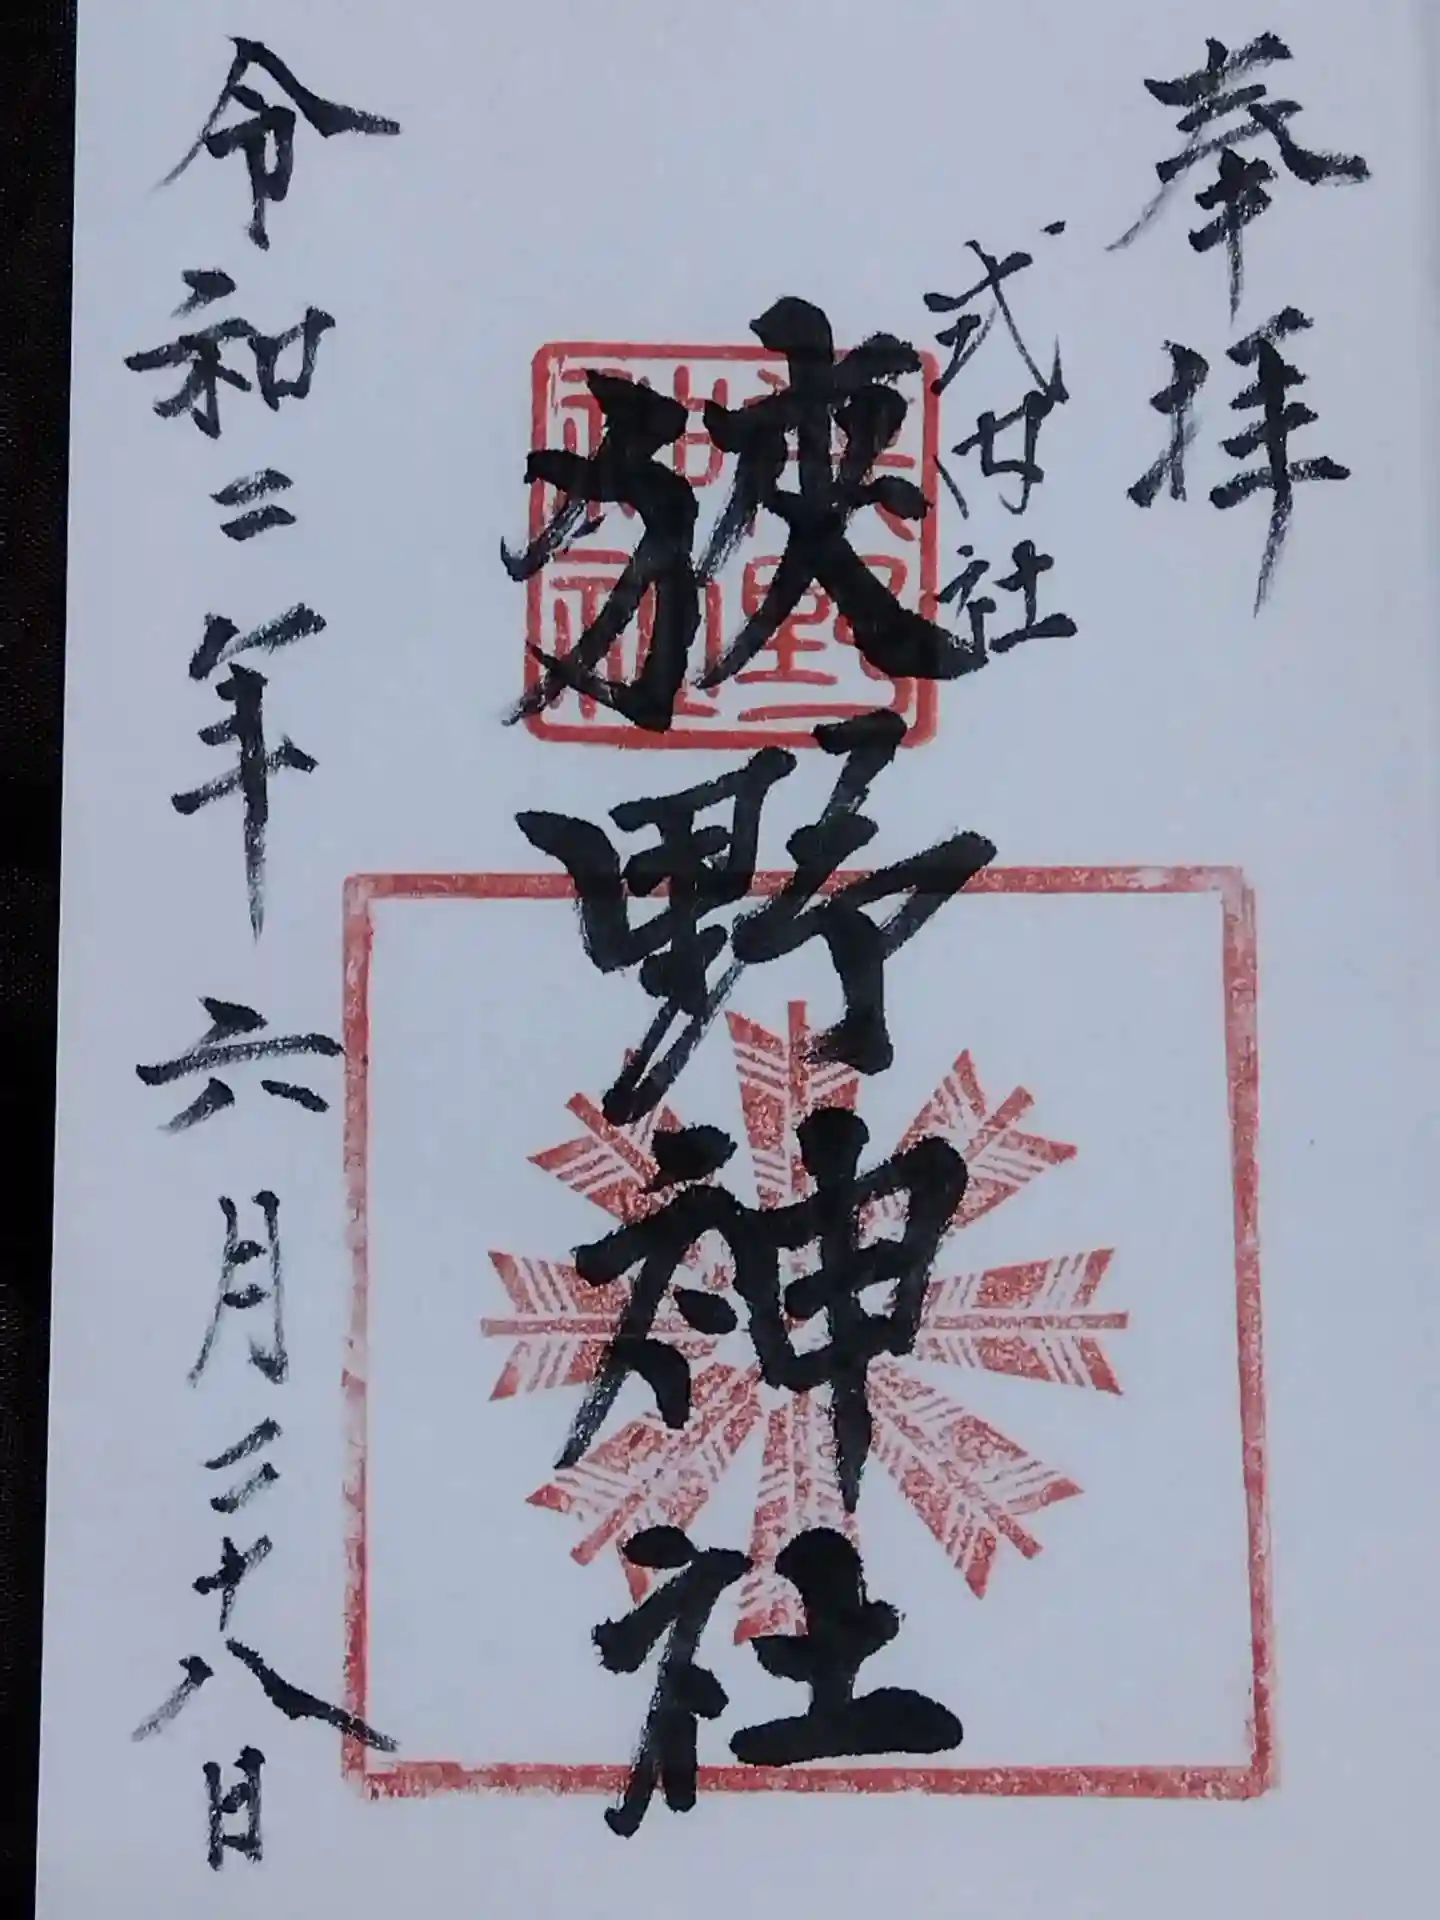 奉拝
式内社
狹野神社
狹野神社
令和二年六月二十八日